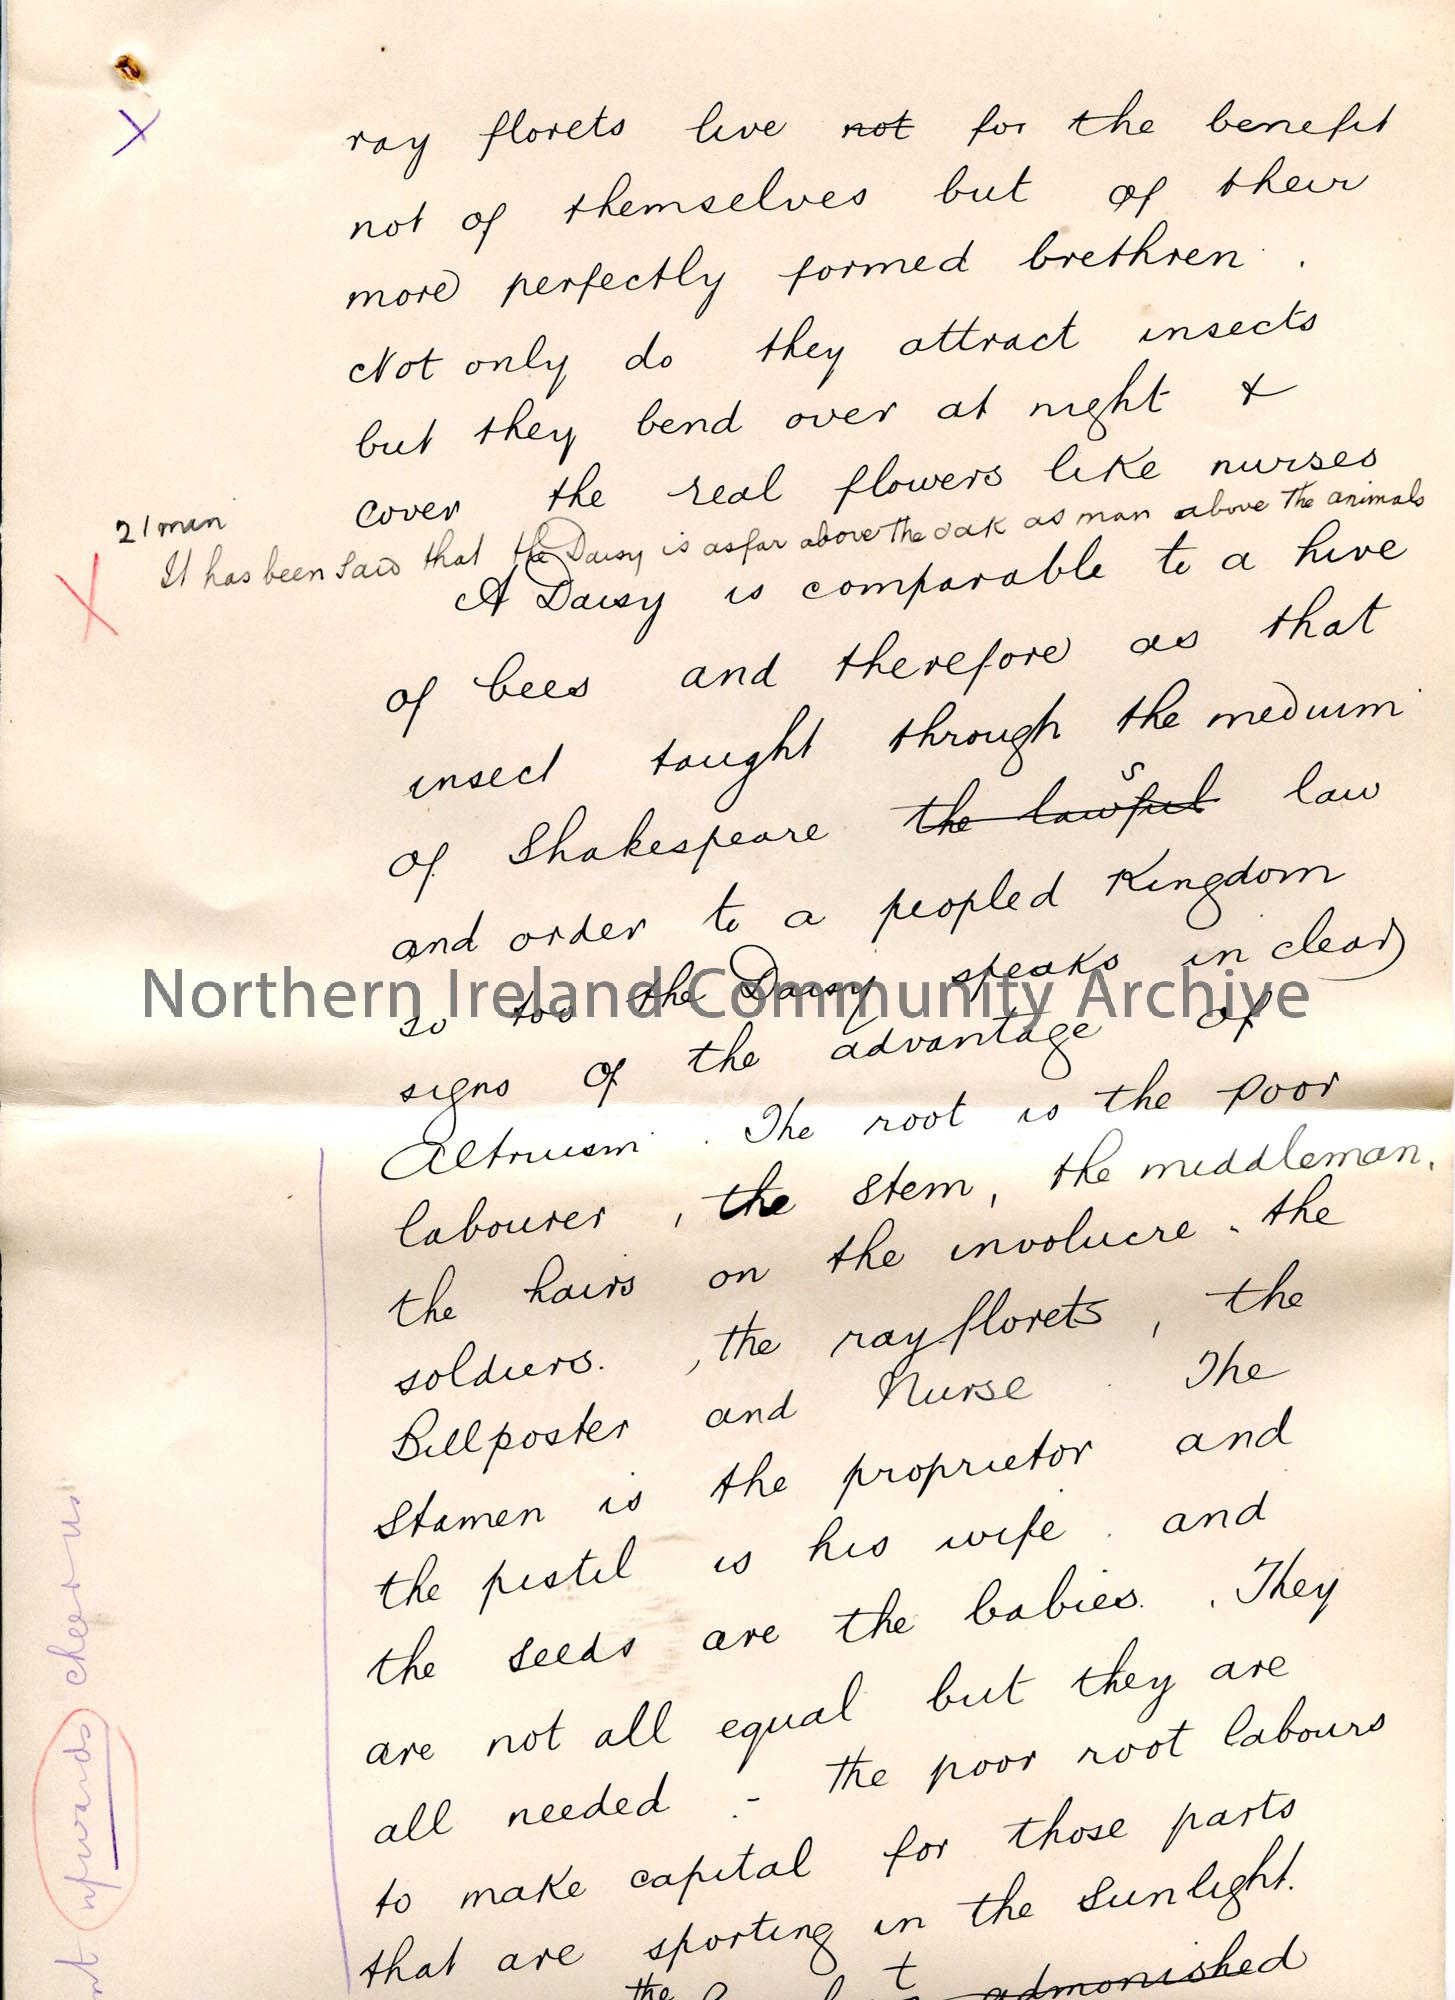 ray florets live not for the benefit
not of themselves but of their
more perfectly formed brethren .
Not only do they attract insects
but they bend over at night &
cover the real flowers like nurses
21 min
It has been said that the Daisy is as far above The oak as man above The animals
A Daisy is comparable to a hive
of bees and therefore as that
insect taught through the medium
s
of Shakespeare the lawful law
and order to a peopled Kingdom
so too the Daisy speaks in clear
Northern Ireland Community Archive
signs of the advantage of
Altruism . The root is the poor
labourer , the stem , the middleman ,
the hairs on the involucre . the
soldiers. , the ray florets , the
Billposter and Nurse . The
Stamen is the proprietor and
the pistil is his wife . and
the seeds are the babies. . They
are not all equal but they are
all needed .- the poor root labours
to make capital for those parts
that are sporting in the sunlight.
the t admonished
upwards cheer us